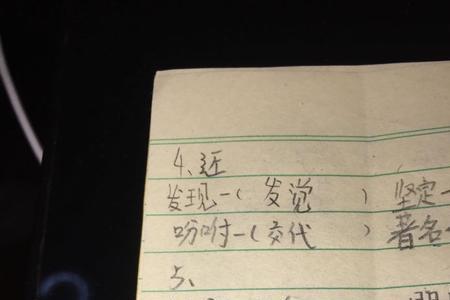 4、近
发现—(发觉) 坚定—
吩咐—(交代) 著名—
5、